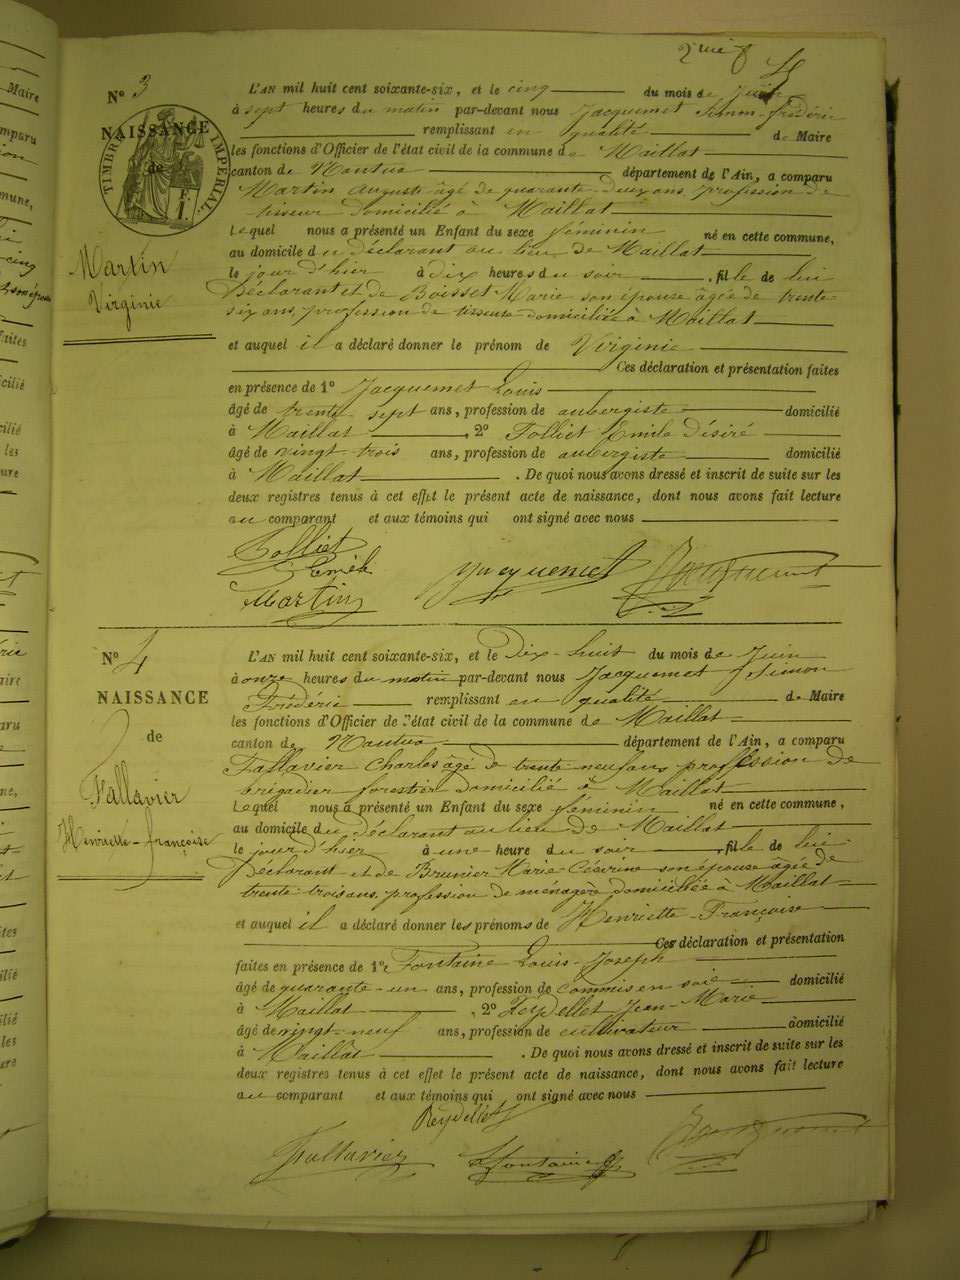 2me f
Nº 3
TIMBRE IMPERIAL
NAISSANCE
de
Martin
Virginie
L'AN mil huit cent soixante-six, et le cinq du mois de Juin
à sept heures du matin par-devant nous Jacquemet Simon-Frédéric
remplissant en qualité de Maire
les fonctions d'Officier de l'état civil de la commune de Maillat
canton de Nantua département de l'Ain, a comparu
Martin Auguste âgé de quarante-deux ans profession de
tisseur domicilié à Maillat
Lequel nous a présenté un Enfant du sexe féminin né en cette commune,
au domicile du déclarant au lieu de Maillat
le jour d'hier à dix heures du soir, fille de lui
Déclarant et de Boisset Marie son épouse âgée de trente
six ans, profession de tisseuse domiciliée à Maillat
et auquel il a déclaré donner le prénom de Virginie
Ces déclaration et présentation faites
en présence de 1º Jacquemet Louis
âgé de trente sept ans, profession de aubergiste domicilié
à Maillat, 2º Folliet Emile Désiré
âgé de vingt-trois ans, profession de aubergiste domicilié
à Maillat. De quoi nous avons dressé et inscrit de suite sur les
deux registres tenus à cet effet le présent acte de naissance, dont nous avons fait lecture
au comparant et aux témoins qui ont signé avec nous
Folliet
Emile
Martin
Jacquemet
Jacquemet
Nº 4
NAISSANCE
de
Fallavier
Henriette-françoise
L'AN mil huit cent soixante-six, et le Dix-huit du mois de Juin
à onze heures du matin par-devant nous Jacquemet Simon
Frédéric remplissant en qualité de Maire
les fonctions d'Officier de l'état civil de la commune de Maillat
canton de Nantua département de l'Ain, a comparu
Fallavier Charles âgé de trente-neuf ans profession de
brigadier forestier domicilié à Maillat
Lequel nous a présenté un Enfant du sexe féminin né en cette commune,
au domicile du déclarant au lieu de Maillat
le jour d'hier à une heure du soir, fille de lui
Déclarant et de Brunier Marie Césarine son épouse âgée de
trente-trois ans, profession de ménagère domiciliée à Maillat
et auquel il a déclaré donner les prénoms de Henriette-Françoise
Ces déclaration et présentation
faites en présence de 1º Fontaine Louis-Joseph
âgé de quarante-un ans, profession de Commis en soie domicilié
à Maillat, 2º Reydellet Jean-Marie
âgé de vingt-neuf ans, profession de cultivateur domicilié
à Maillat. De quoi nous avons dressé et inscrit de suite sur les
deux registres tenus à cet effet le présent acte de naissance, dont nous avons fait lecture
au comparant et aux témoins qui ont signé avec nous
Reydellet
Fallavier
L fontaine
Jacquemet